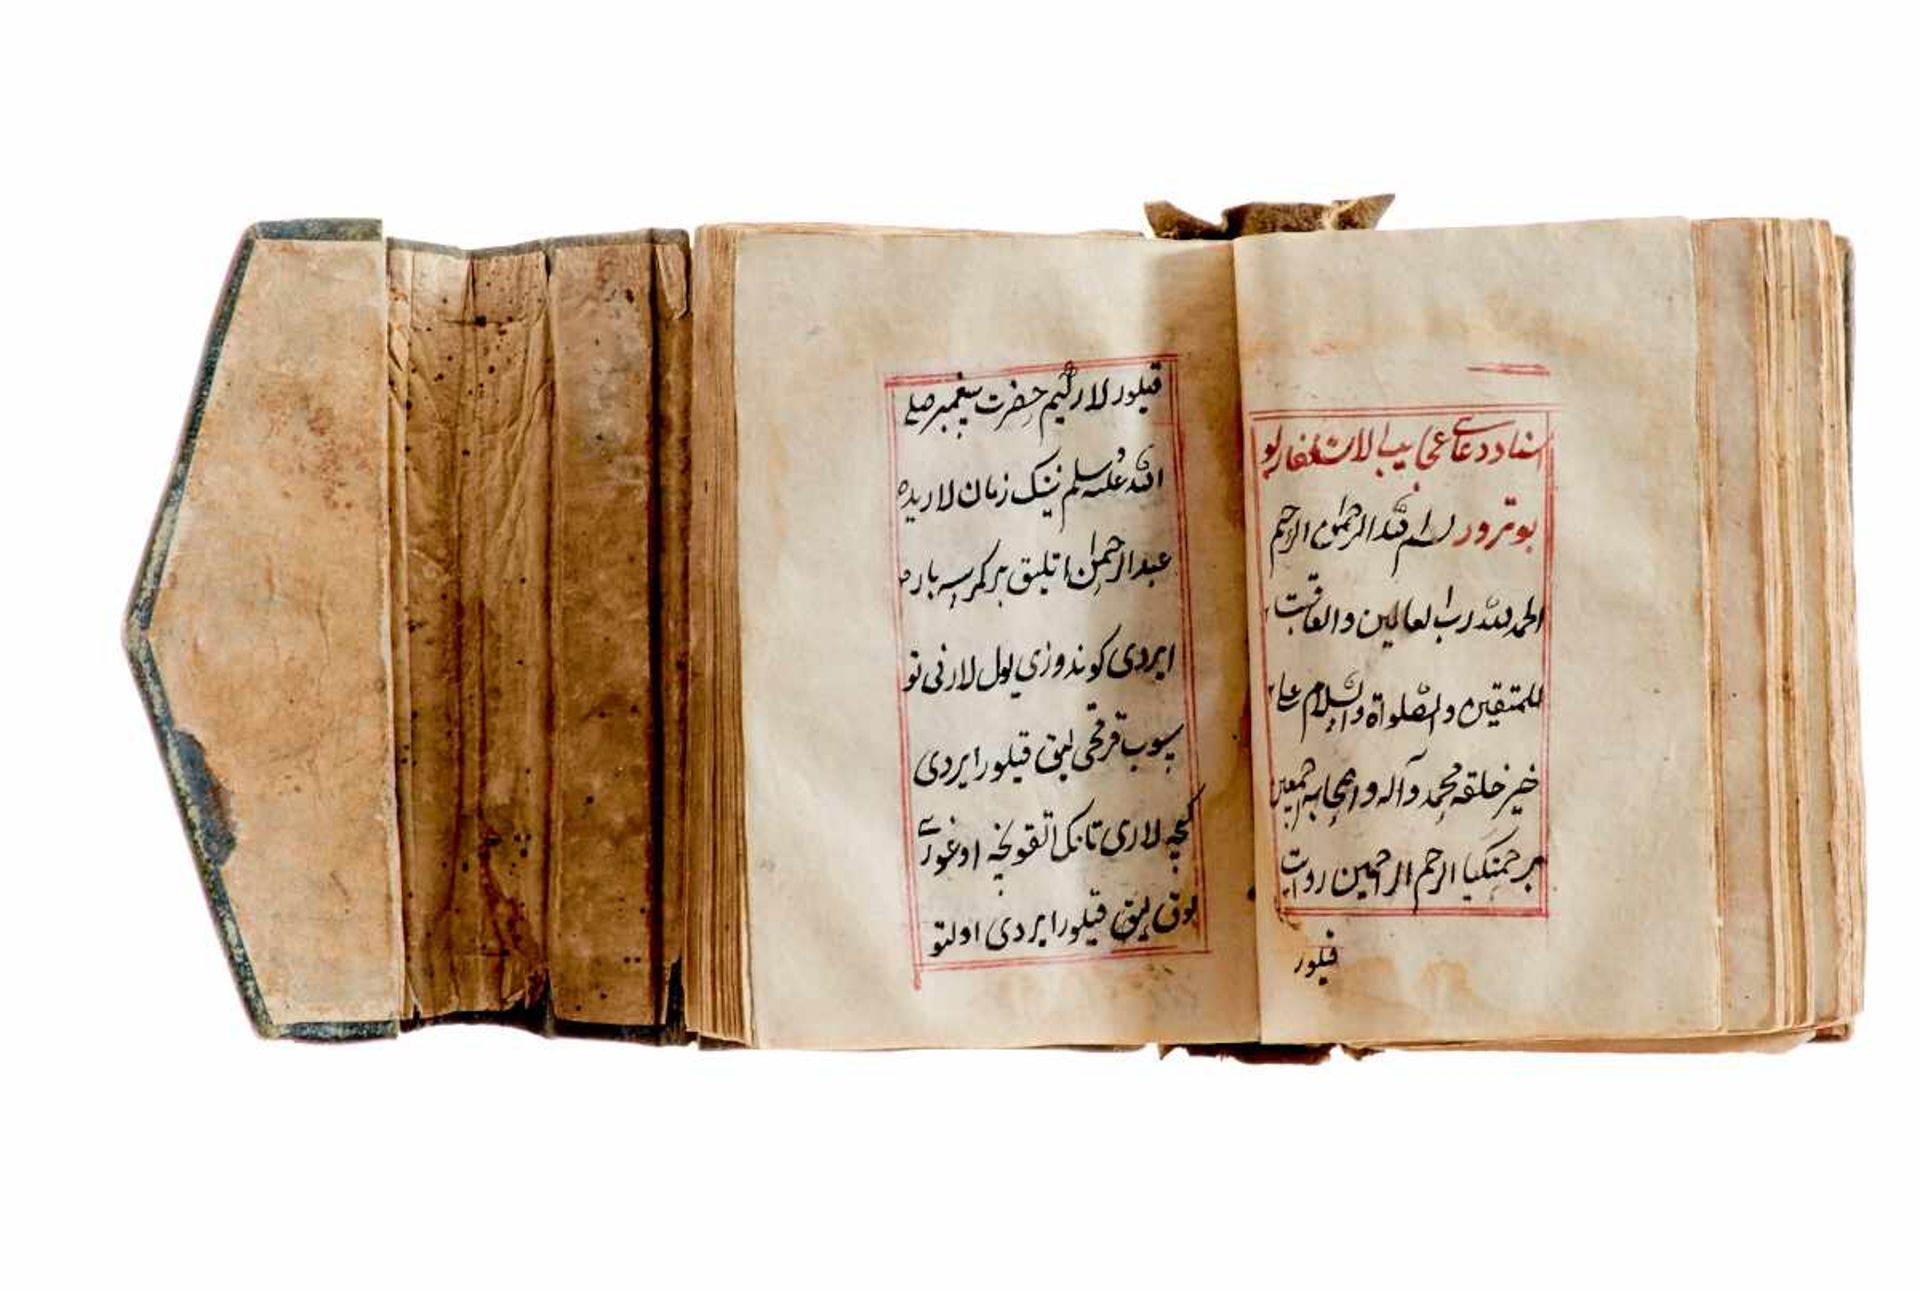 اسناد دعاے عجایب الاستغفار بو
بو ترور بسم الله الرحمن الرحیم
الحمد لله رب العالمین والعاقبت
للمتقین والصلواة والسلام علی
خیر خلقه محمد وآله واصحابه اجمعین
برحمتک یا ارحم الراحمین روایت
قیلور
قیلورلار کیم حضرت پیغمبر صلی
الله علیه وسلم نینک زمان لاریده
عبدالرحمن اتلیق بر کمرسه بار
ایردی کوندوزی یول لارنی تو
سوب قرقچی لیق قیلور ایردی
کیچه لاری تانک اتقونچه اوغورے
لوق لیق قیلور ایردی اولتو